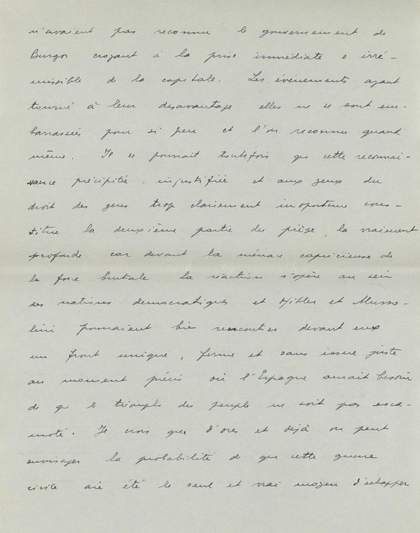 n'avaient pas reconnu le gouvernement de
Burgos croyant à la prise immédiate e irré-
missible de la capitale. Les événements ayant
tourné à leur desavantage elles ne se sont em-
barrassées pour si peu et l'on reconnu quand
même. Il se pourrait toutefois que cette reconnai-
sance précipitée, injustifiée et aux yeux du
droit des gens trop clairement inoportune cons-
titue la deuxième partie du piège, la vraiment
profonde car devant la ménace capricieuse de
la force brutale la réaction s'opère au sein
des nations démocratiques et Hitler et Musso-
lini pourraient bien rencontrer devant eux
un front unique, ferme et sans issue juste
au moment précis où l'Espagne aurait besoin
de que le triomphe des peuples ne soit pas esca-
moté. Je crois que d'ores et déjà on peut
envisager la probabilité de que cette guerre
civile aie été le seul et vrai moyen d'échapper